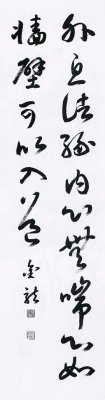 外息諸緣内心無喘心如
牆壁可以入道